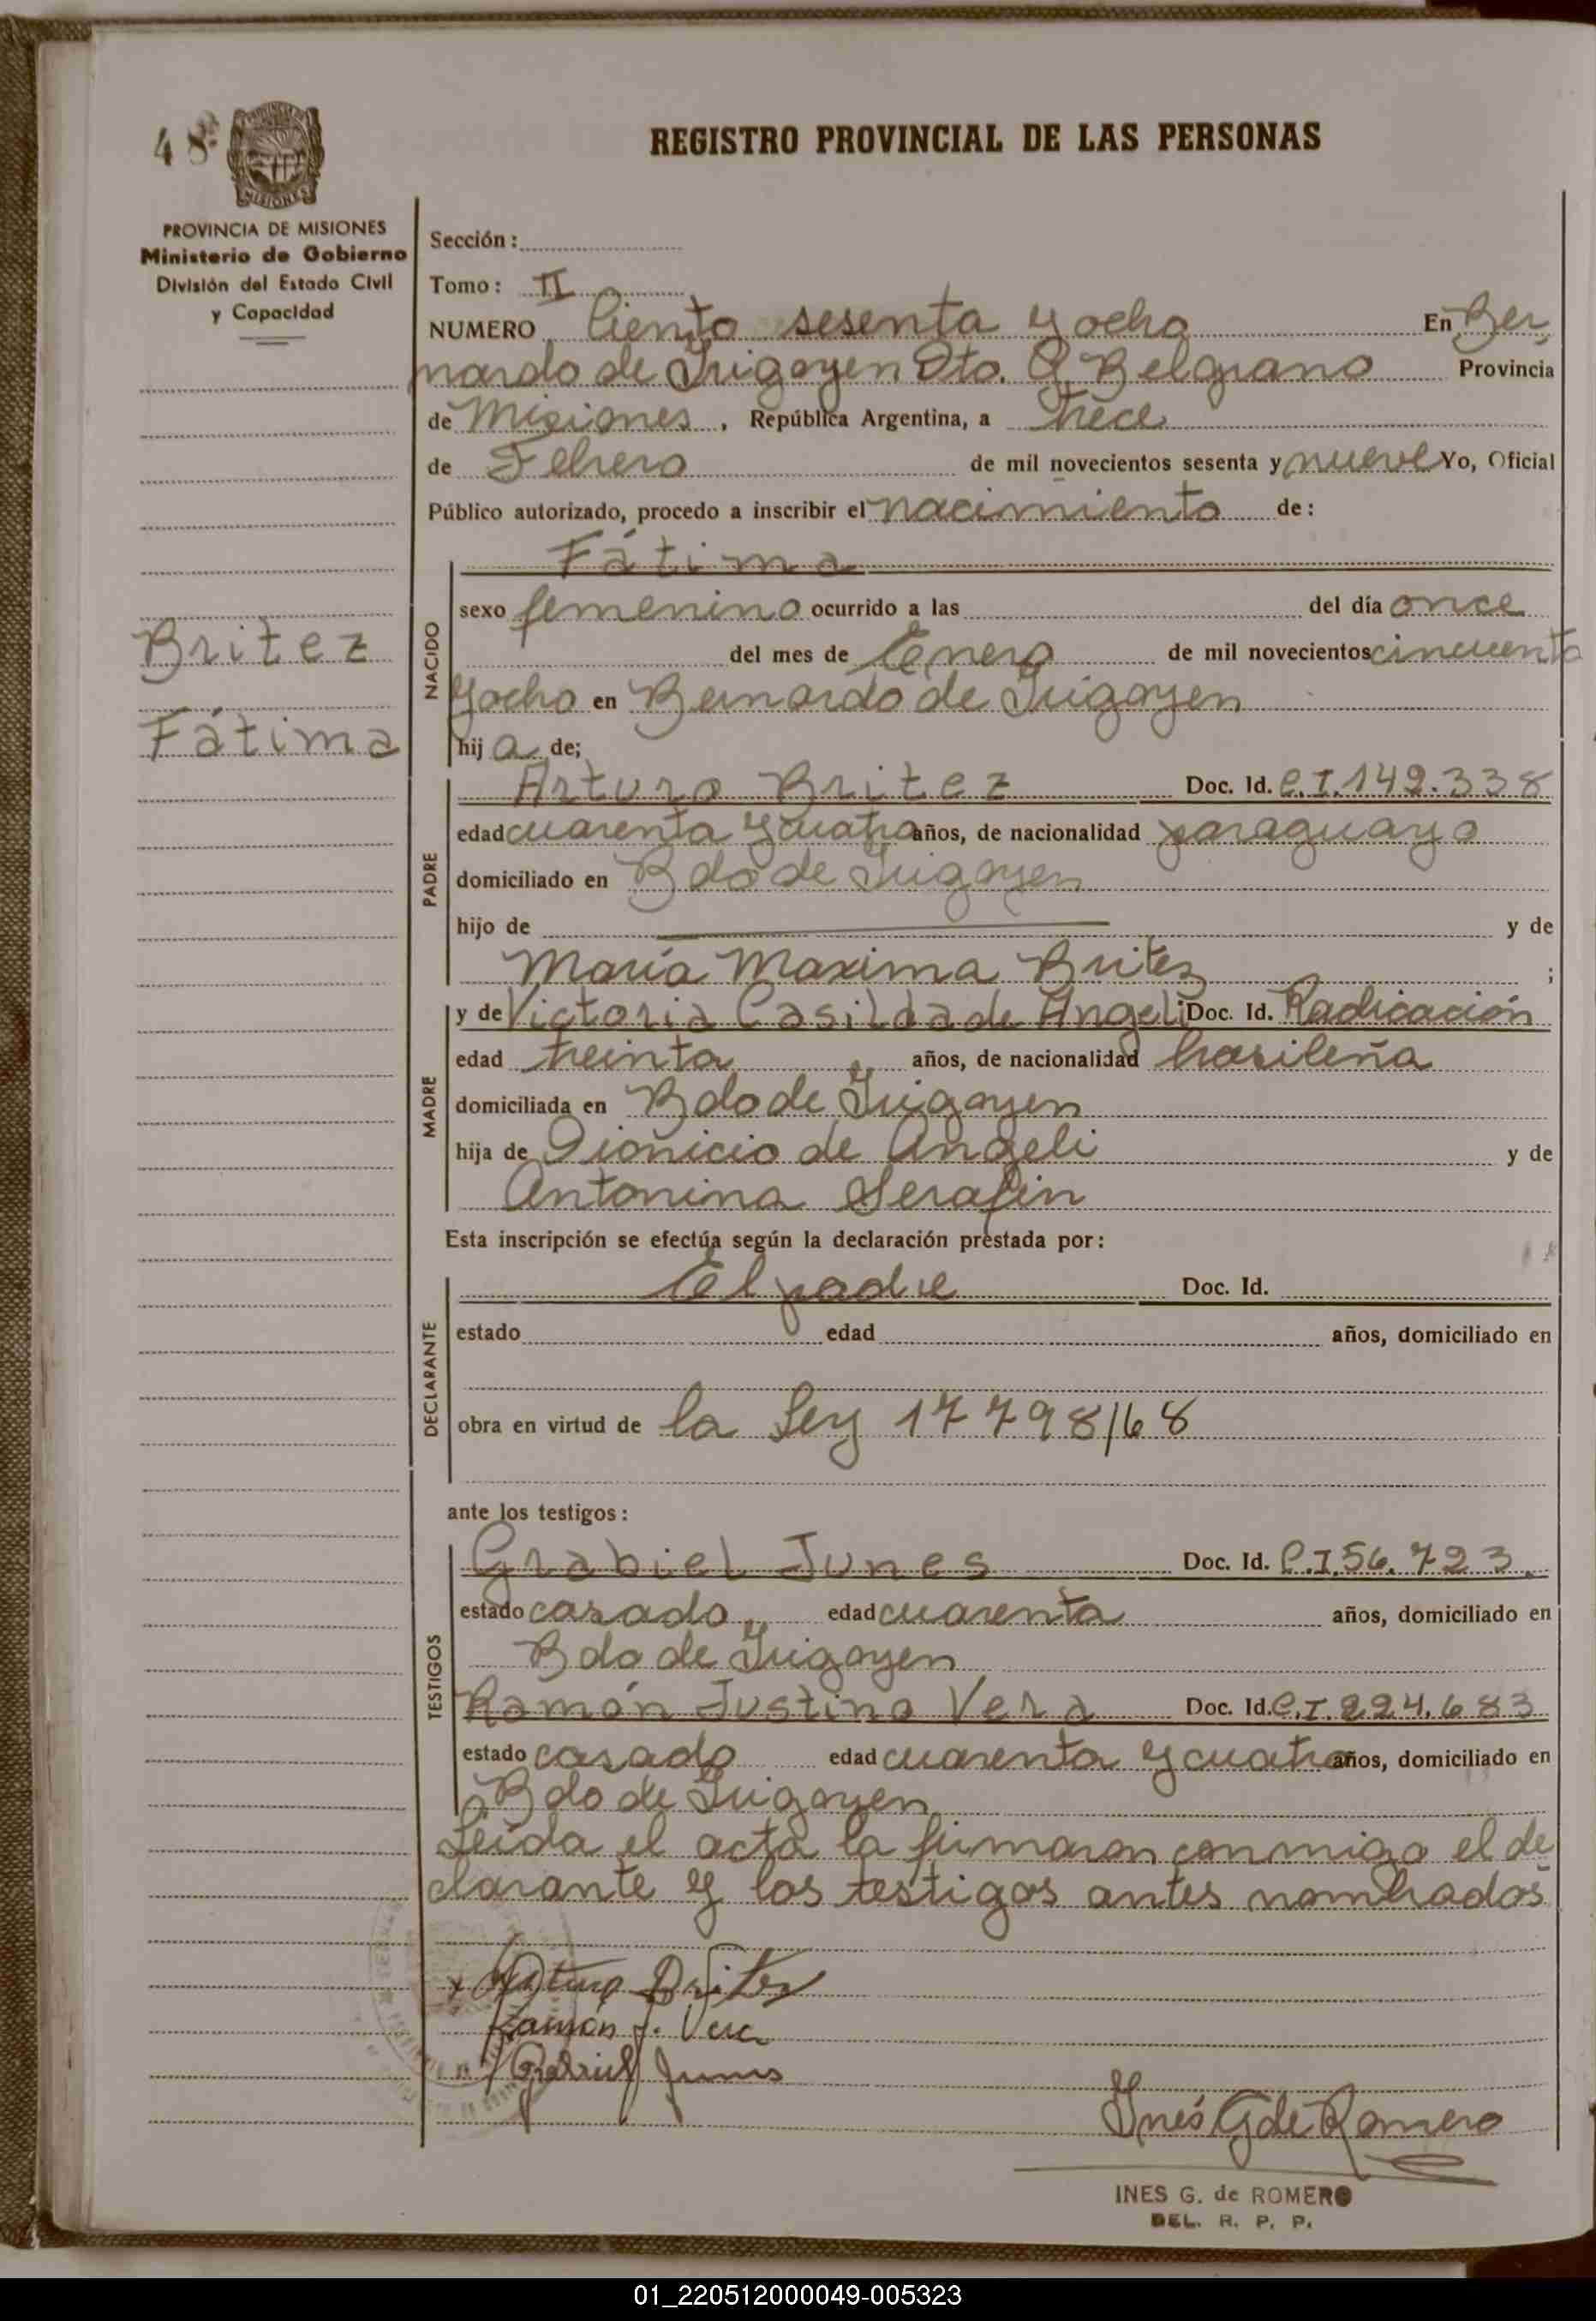 48
PROVINCIA DE MISIONES
Ministerio de Gobierno
División del Estado Civil
y Capacidad
REGISTRO PROVINCIAL DE LAS PERSONAS
Sección:
Tomo: II
NUMERO Ciento sesenta y ocho En Ber
nardo de Irigoyen Dto. G. Belgrano Provincia
de Misiones, República Argentina, a trece
de Febrero de mil novecientos sesenta y nueve Yo, Oficial
Público autorizado, procedo a inscribir el nacimiento de:
Britez
Fátima
NACIDO
Fátima
sexo femenino ocurrido a las del día once
del mes de Enero de mil novecientos cincuenta
y ocho en Bernardo de Irigoyen
hija de;
PADRE
Arturo Britez Doc. Id. C.I.149.338
edad cuarenta y cuatro años, de nacionalidad paraguayo
domiciliado en Bdo de Irigoyen
hijo de y de
María Maxima Britez ;
MADRE
y de Victoria Casilda de Angeli Doc. Id. Radicación
edad treinta años, de nacionalidad brasileña
domiciliada en Bdo de Irigoyen
hija de Dionicio de Angeli y de
Antonina Serafin
Esta inscripción se efectúa según la declaración prestada por:
DECLARANTE
El padre Doc. Id.
estado edad años, domiciliado en
obra en virtud de la Ley 17798/68
ante los testigos:
TESTIGOS
Grabiel Junes Doc. Id. C.I.56.723.
estado casado edad cuarenta años, domiciliado en
Bdo de Irigoyen
Ramón Justino Vera Doc. Id. C.I.224.683
estado casado edad cuarenta y cuatro años, domiciliado en
Bdo de Irigoyen
Leída el acta la firmaron conmigo el de
clarante y los testigos antes nombrados
x Arturo Britez
Ramón J. Vera
Gabriel Junes
Inés G de Romero
INES G. de ROMERO
DEL. R. P. P.
01_220512000049-005323